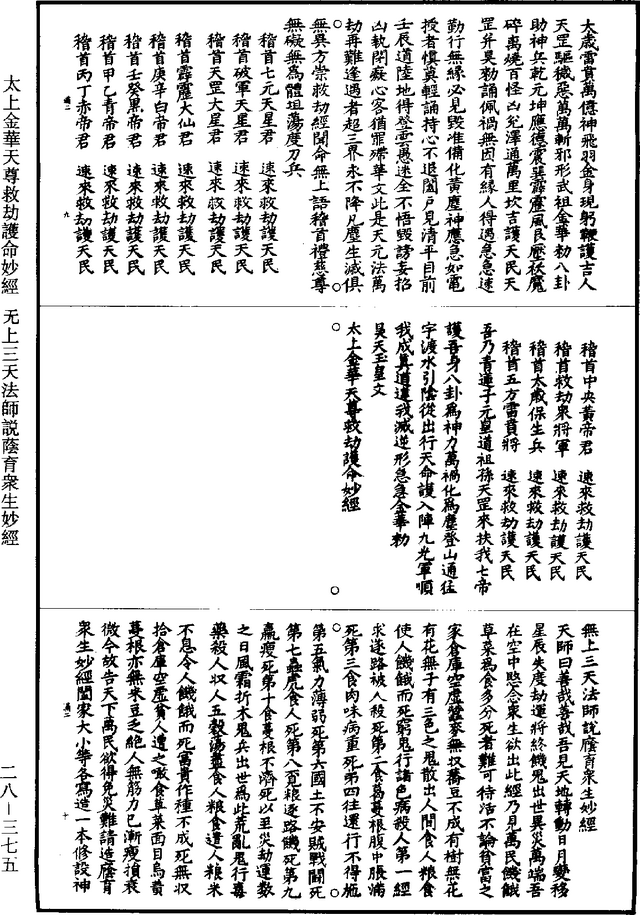 大歲雷賁萬億神飛羽金身現躬鞭護吉人
天罡驅穢惡萬萬斬邪形武祖金華勑八卦
助神兵乾元坤應德震巽霹靂風艮壓袄魔
碎萬燒百怪凶兌澤通萬里坎吉護天民天
罡并昊勑誦佩禍無因有緣人得遇急急速
勤行無緣必見毀准備化黃塵神應急如電
授者慎莫輕誦持心不退闔戶見清平目前
壬辰道陸地得登雲愚迷全不悟毀謗妄招
凶執閉癡心客猶罪殢華文此是天元法萬
劫再難逢遇者超三界永不降凡塵生滅俱
無異方崇救劫經聞命無上語稽首禮慈尊
無礙無為體坦蕩度刀兵
稽首七元天星君　速來救劫護天民
稽首破軍天星君　速來救劫護天民
稽首天罡大星君　速來救劫護天民
稽首霹靂大仙君　速來救劫護天民
稽首庚辛白帝君　速來救劫護天民
稽首壬癸黑帝君　速來救劫護天民
稽首甲乙青帝君　速來救劫護天民
稽首丙丁赤帝君　速來救劫護天民
稽首中央黃帝君　速來救劫護天民
稽首救劫眾將軍　速來救劫護天民
稽首太歲保生兵　速來救劫護天民
稽首五方雷賁將　速來救劫護天民
吾乃青蓮子元皇道祖孫天罡來扶我七帝
護吾身八卦為神力萬禍化為塵登山通猛
字渡水引陰從出行天命護入陣九光軍順
我成真道違我滅逆形急急金華勑
昊天玉皇文
太上金華天尊救劫護命妙經
無上三天法師說蔭育眾生妙經
天師曰善哉善哉吾見天地轉動日月變移
星辰失度劫運將終餓鬼出世異災萬端吾
在空中愍念眾生欲出此經乃見萬民饑餓
草菜為食多分死者難可待活不論貧富之
家倉庫空虛蠶麥無収蕎豆不成有樹無花
有花無子有三色之鬼散出人間食人粮食
使人饑餓而死窮鬼行諸色病殺人第一經
求逐路被人殺死第二食葛蔓根腹中脹滿
死第三食肉味病重死第四往還行不得拖
第五氣力薄弱死第六國土不安賊戰鬪死
第七蟲虎食人死第八覓粮逐路餓死第九
羸瘦死第十食蔓根不濟死以至災劫運數
之日風霜折木鬼兵出世為此荒亂鬼行毒
藥殺人収人五穀湯藎食人粮食遣人粮米
不息令人饑餓而死富貴作種不成死無収
拾倉庫空虛貧人遭之噉食草菜面目烏黃
蔓根亦無米豆乏絕人無筋力已漸瘦損衰
微今故告天下萬民欲得免災難請造蔭育
眾生妙經闔家大小等各寫造一本修設神
太上金華天尊救劫護命妙經　无上三天法師説蔭育衆生妙經
二八－三七五